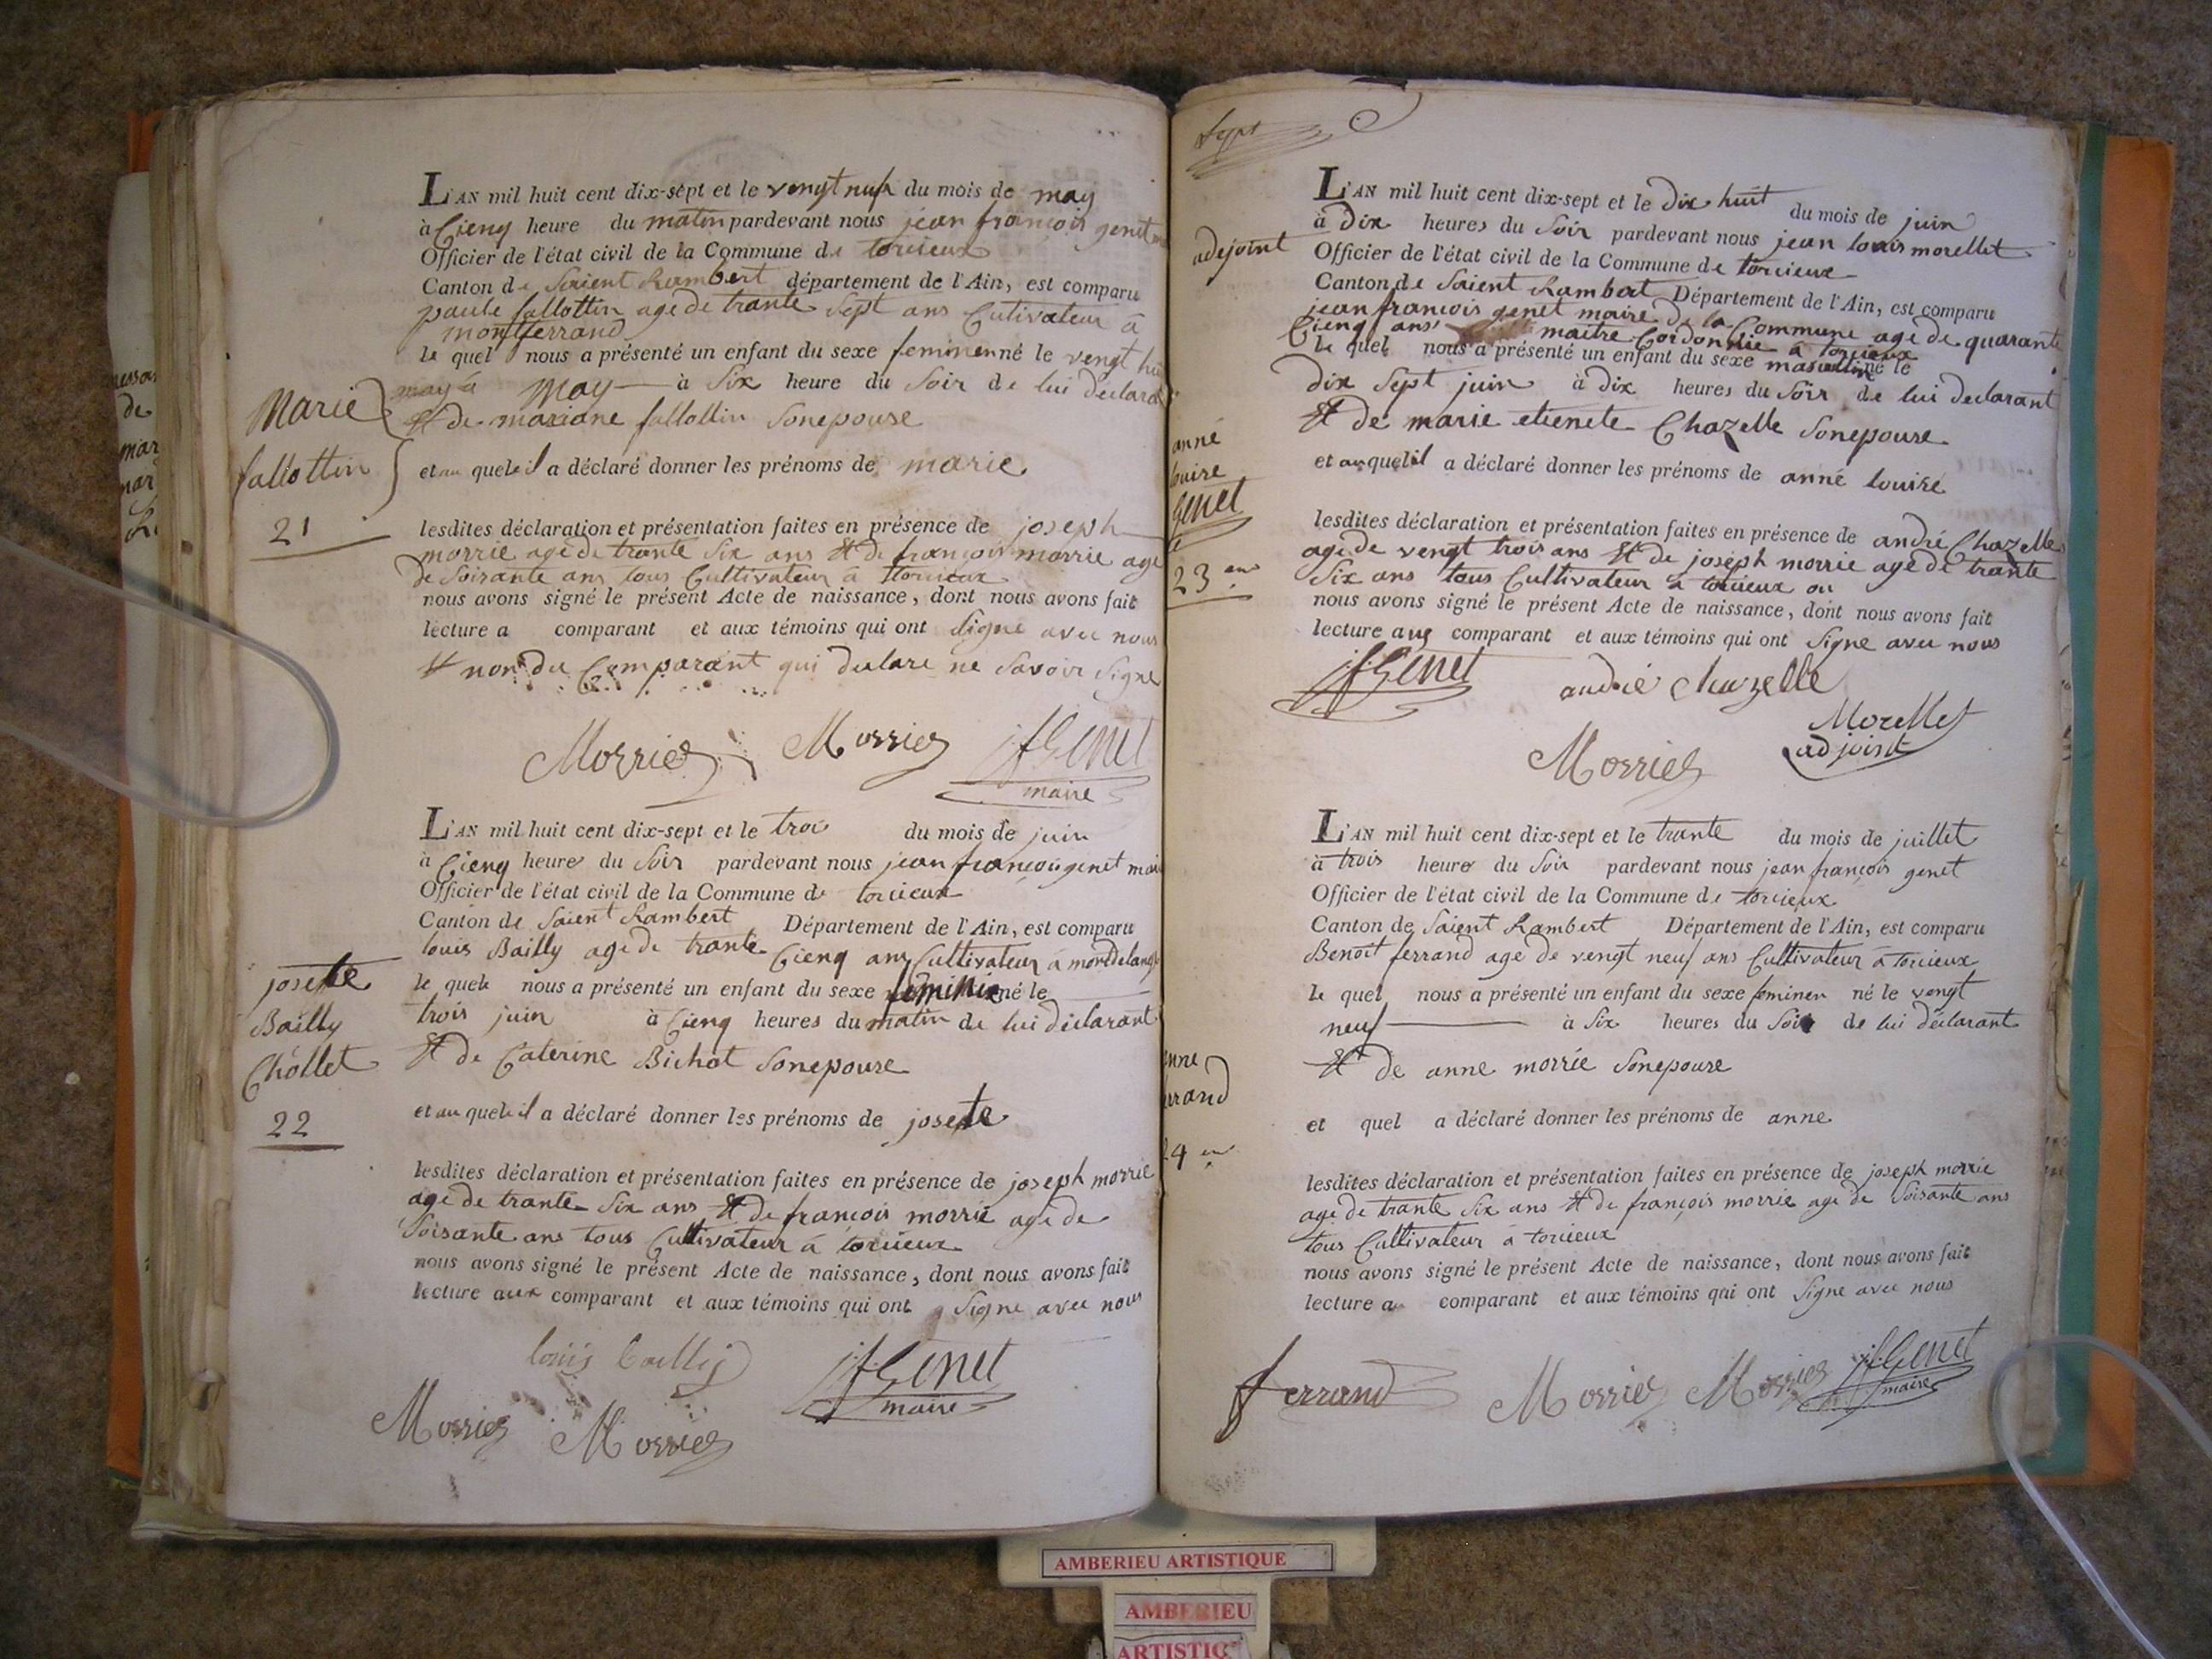 L'AN mil huit cent dix-sept et le vengt nuf du mois de may
à Cienq heure du matin pardevant nous jean françois genet
Officier de l'état civil de la Commune de torcieux
Canton de Saient Rambert département de l'Ain, est comparu
paule fallottin age de trante Sept ans Cutivateur à
montferrand
le quel nous a présenté un enfant du sexe feminen né le vengt
may à may à Six heure du Soir de lui declarant
Et de mariane fallottin Sonepouse
Marie
fallottin
et au quel il a déclaré donner les prénoms de marie
21
lesdites déclaration et présentation faites en présence de joseph
morrie age de trante Six ans Et de françois morrie age
de Soisante ans tous Cultivateur à torcieux
nous avons signé le présent Acte de naissance, dont nous avons fait
lecture a comparant et aux témoins qui ont Signe avec nous
Et non du Comparant qui declare ne Savoir Signe
Morriez Morriez jfGenet
maire
L'AN mil huit cent dix-sept et le troi du mois de juin
à Cienq heures du Soir pardevant nous jean françois genet maire
Officier de l'état civil de la Commune de torcieux
Canton de Saient Rambert Département de l'Ain, est comparu
louis Bailly age de trante Cienq ans Cultivateur à
le quel nous a présenté un enfant du sexe né le
trois juin à Cienq heures du matin de lui declarant
Et de Caterine Bichot Sonepouse
josepte
Bailly
Chollet
22
et au quel il a déclaré donner les prénoms de josepte
lesdites déclaration et présentation faites en présence de joseph morrie
age de trante Six ans Et de françois morrie age de
Soisante ans tous Cultivateur à torcieux
nous avons signé le présent Acte de naissance, dont nous avons fait
lecture aux comparant et aux témoins qui ont Signe avec nous
louis bailly jfGenet
maire
Morriez Morriez
Sept
L'AN mil huit cent dix-sept et le dix huit du mois de juin
à dix heures du Soir pardevant nous jean louis morellet
adejoint
Officier de l'état civil de la Commune de torcieux
Canton de Saient Rambert Département de l'Ain, est comparu
jean francois genet maire de la Commune age de quarante
Cienq ans maitre Cordonnie à torcieux
le quel nous a présenté un enfant du sexe né le
dix Sept juin à dix heures du Soir de lui declarant
Et de marie etienete Chazelle Sonepouse
anné
louise
Genet
23
et au quel il a déclaré donner les prénoms de anné louise
lesdites déclaration et présentation faites en présence de andré Chazelle
age de vengt trois ans Et de joseph morrie age de trante
Six ans tous Cultivateur à torcieux ou
nous avons signé le présent Acte de naissance, dont nous avons fait
lecture aux comparant et aux témoins qui ont Signe avec nous
jfGenet andré chazelle
Morellet
adjoint
Morriez
L'AN mil huit cent dix-sept et le trante du mois de juillet
à trois heures du Soir pardevant nous jean françois genet
Officier de l'état civil de la Commune de torcieux
Canton de Saient Rambert Département de l'Ain, est comparu
Benoit ferrand age de vengt neuf ans Cultivateur à torcieux
le quel nous a présenté un enfant du sexe feminen né le vengt
neuf à Six heures du Soir de lui déclarant
Et de anne morrie Sonepouse
et quel a déclaré donner les prénoms de anne
lesdites déclaration et présentation faites en présence de joseph morrie
age de trante Six ans Et de françois morrie age de Soisante ans
tous Cultivateur à torcieux
nous avons signé le présent Acte de naissance, dont nous avons fait
lecture a comparant et aux témoins qui ont Signe avec nous
ferrand Morriez Morriez jfGenet
maire
AMBERIEU ARTISTIQUE
AMBERIEU